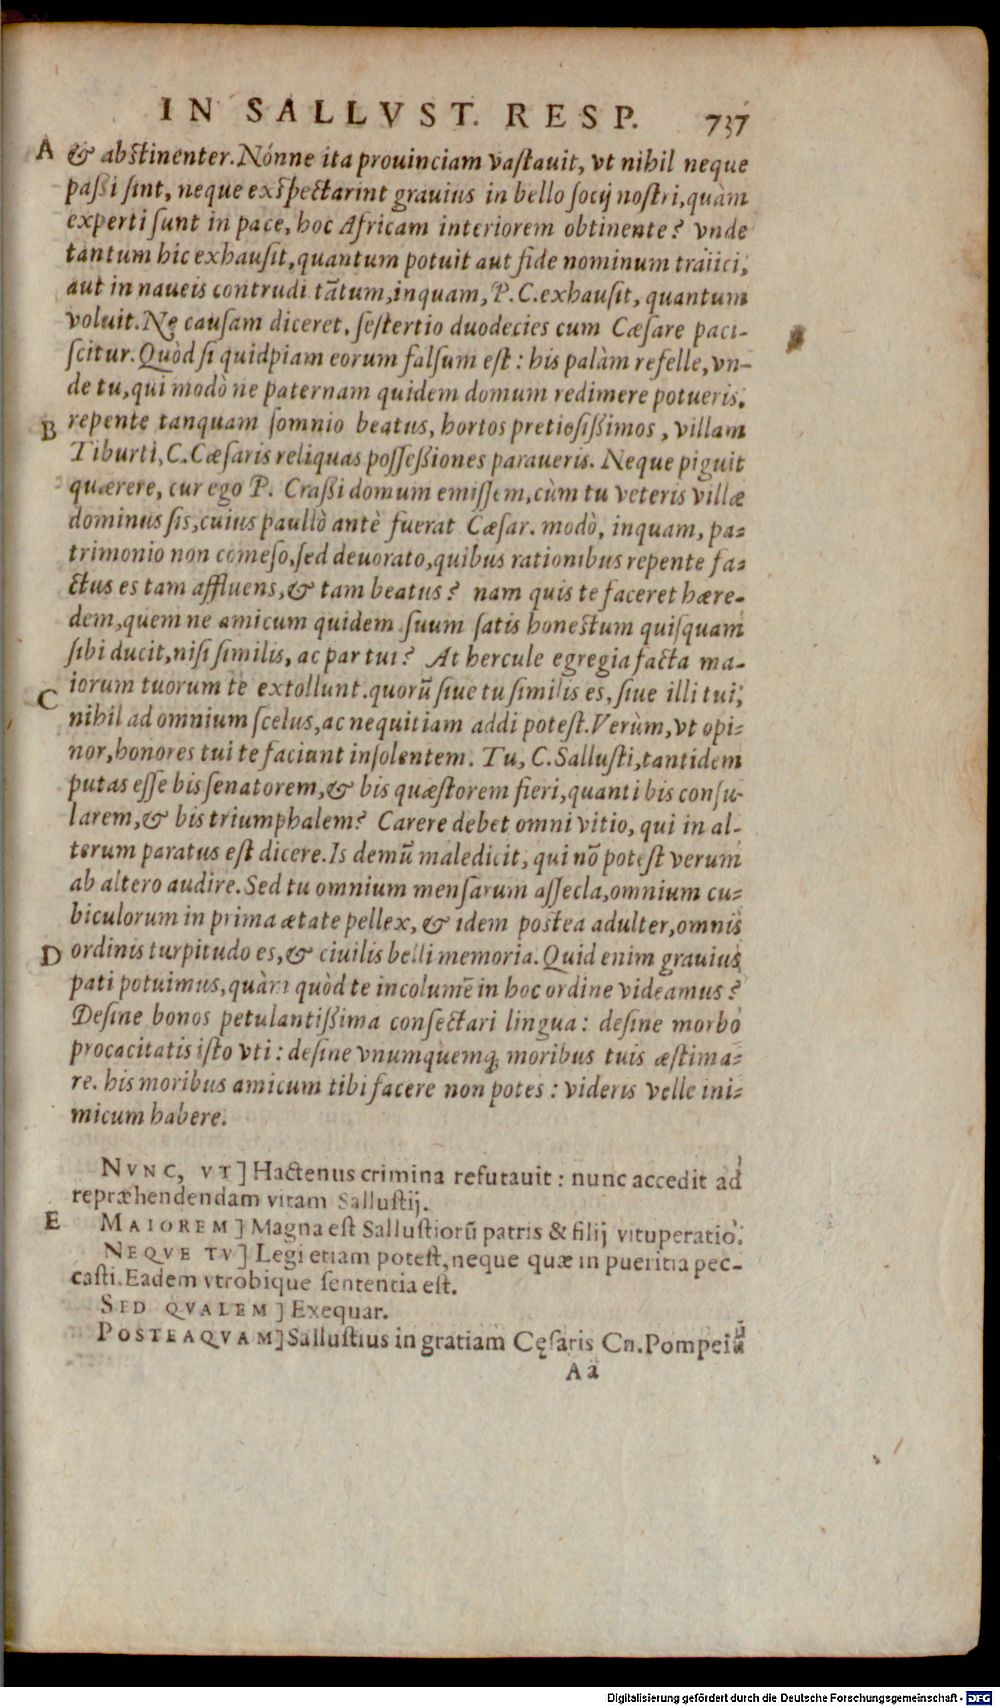 IN SALLVST. RESP. 737
A & abstinenter. Nónne ita prouinciam vastauit, vt nihil neque
paßi sint, neque exspectarint grauius in bello socij nostri, quàm
experti sunt in pace, hoc Africam interiorem obtinente? vnde
tantum hic exhausit, quantum potuit aut fide nominum traiici,
aut in naueis contrudi tãtum, inquam, P. C. exhausit, quantum
voluit. Ne causam diceret, sestertio duodecies cum Cæsare paci-
scitur. Quòd si quidpiam eorum falsum est: his palàm refelle, vn-
de tu, qui modò ne paternam quidem domum redimere potueris,
B repente tanquam somnio beatus, hortos pretiosißimos, villam
Tiburti, C. Cæsaris reliquas possessiones paraueris. Neque piguit
quærere, cur ego P. Craßi domum emissem, cùm tu veteris villæ
dominus sis, cuius paullò antè fuerat Cæsar. modò, inquam, pa-
trimonio non comeso, sed deuorato, quibus rationibus repente fa-
ctus es tam affluens, & tam beatus? nam quis te faceret hære-
dem, quem ne amicum quidem suum satis honestum quisquam
sibi ducit, nisi similis, ac par tui? At hercule egregia facta ma-
C iorum tuorum te extollunt. quorũ siue tu similis es, siue illi tui,
nihil ad omnium scelus, ac nequitiam addi potest. Verùm, vt opi-
nor, honores tui te faciunt insolentem. Tu, C. Sallusti, tantidem
putas esse bis senatorem, & bis quæstorem fieri, quanti bis consu-
larem, & bis triumphalem? Carere debet omni vitio, qui in al-
terum paratus est dicere. Is demũ maledicit, qui nõ potest verum
ab altero audire. Sed tu omnium mensarum assecla, omnium cu-
biculorum in prima ætate pellex, & idem postea adulter, omnis
D ordinis turpitudo es, & ciuilis belli memoria. Quid enim grauius
pati potuimus, quàm quòd te incolumẽ in hoc ordine videamus?
Desine bonos petulantißima consectari lingua: desine morbo
procacitatis isto vti: desine vnumquemq; moribus tuis æstima-
re. his moribus amicum tibi facere non potes: videris velle ini-
micum habere.
NVNC, VT] Hactenus crimina refutauit: nunc accedit ad
repræhendendam vitam Sallustij.
E MAIOREM] Magna est Sallustiorũ patris & filij vituperatio.
NEQVE TV] Legi etiam potest, neque quæ in pueritia pec-
casti. Eadem vtrobique sententia est.
SED QVALEM] Exequar.
POSTEAQVAM] Sallustius in gratiam Cęsaris Cn. Pompeiũ
Aa
Digitalisierung gefördert durch die Deutsche Forschungsgemeinschaft - DFG